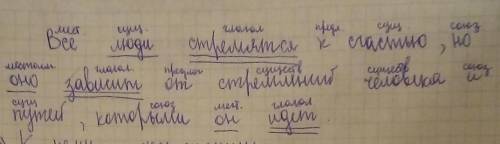 мест. сущ. глагол предл. сущ союз
Все люди стремятся к счастью, но
местоим. глагол. предлог существ существ союз
оно зависит от стремлений человека и
сущ союз мест. глагол
путей, которыми он идет.